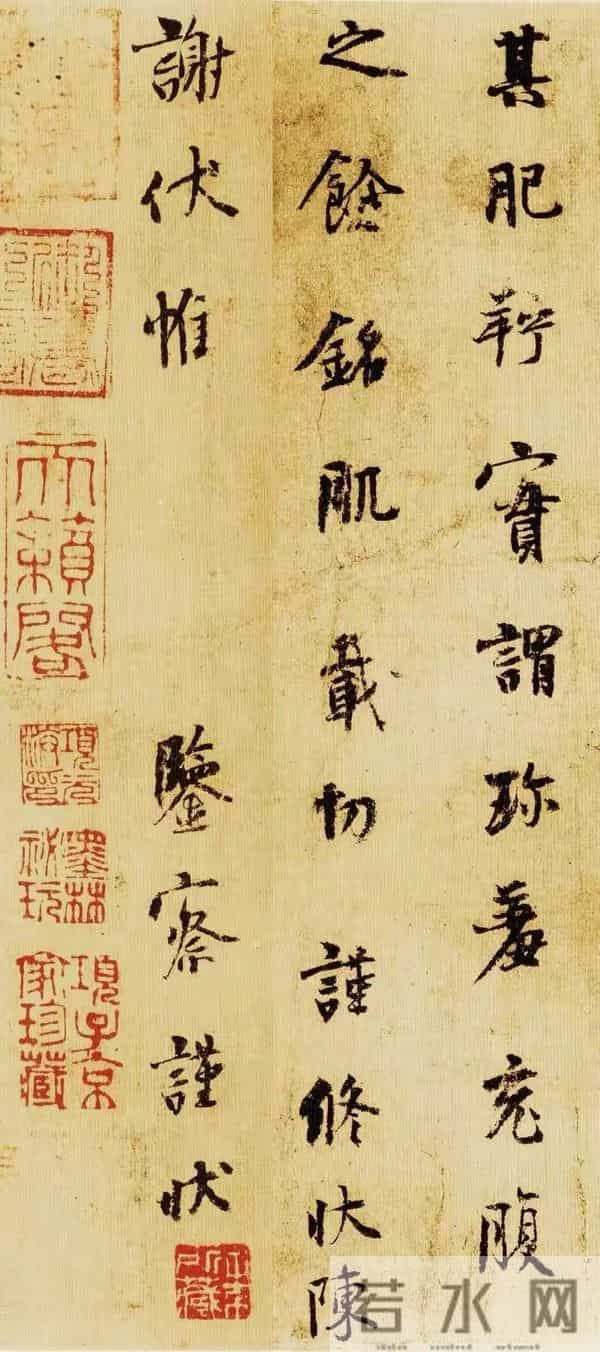 其肥羜實謂珎羞充腹
之餘銘肌載切謹修狀陳
謝伏惟 鑒察謹狀
天籟閣
項元汴印
墨林祕玩
項子京家珍藏
若水网